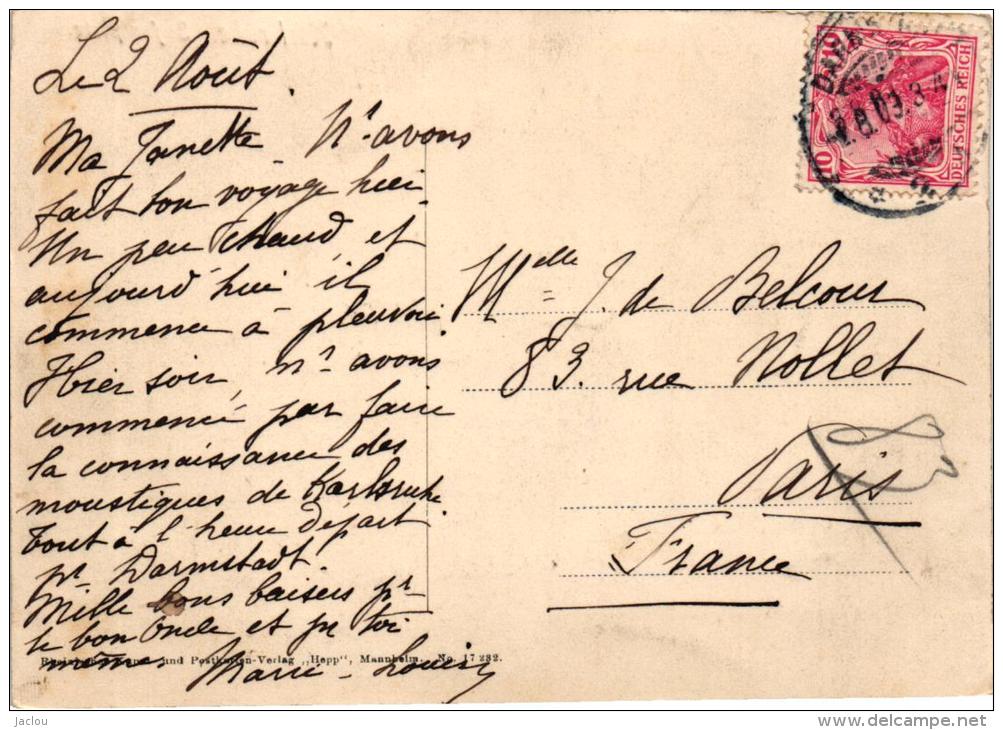 Le 2 Août.
Ma Janette - Ns avons
fait bon voyage hier -
Un peu chaud et
aujourd'hui il
commence à pleuvoir.
Hier soir, ns avons
commencé par faire
la connaissance des
moustiques de Karlsruhe.
Tout à l'heure départ
pr Darmstadt.
Mille bons baisers pr
le bon Oncle et pr toi
même.
Marie-Louise
Mlle J. de Belcour
83. rue Nollet
Paris
France
10 10
DEUTSCHES REICH
8.09. 3-4
und Postkarten-Verlag „Hepp", Mannheim. No. 17 282.
Jaclou
http://www.delcampe.net